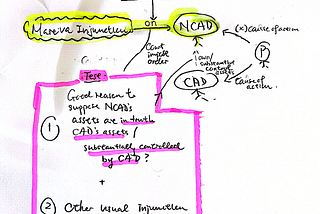 Mareva Injunction
on
NCAD
(x) cause of action
Court
order
own/
substantive
control
assets
P
CAD
Cause of
action
Test
Good reason to
suppose NCAD's
assets are in truth
CAD's assets /
substantially controlled
by CAD?
①
+
② Other usual injunction